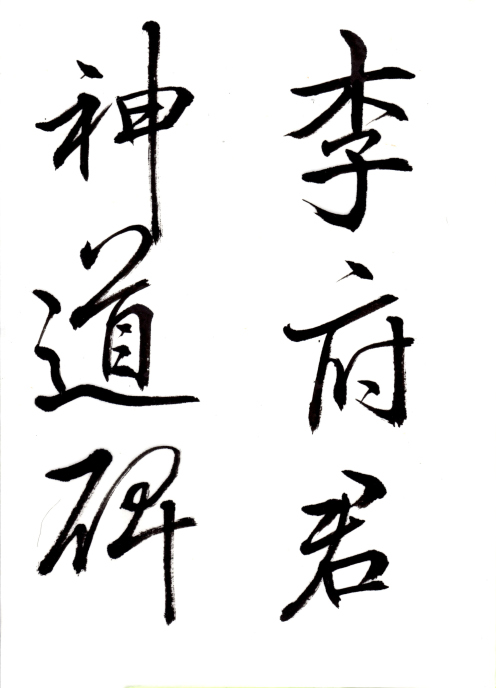 李府君
神道碑